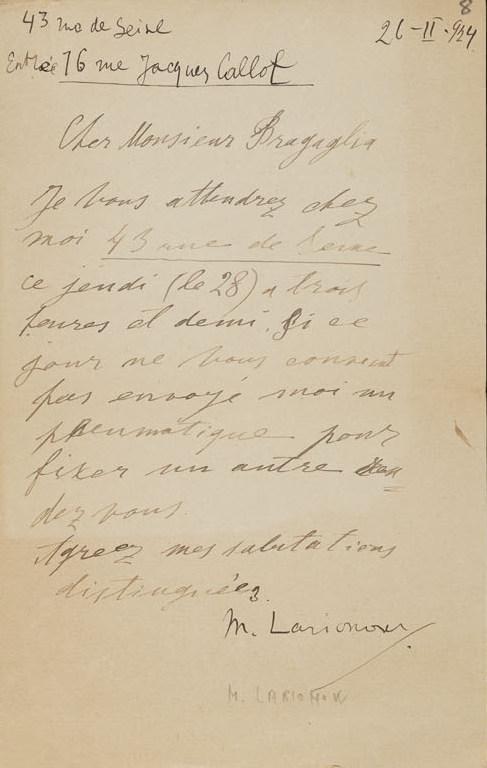 8
43 rue de Seine
26-II-934
Entrée 16 rue Jacques Callot
Cher Monsieur Bragaglia
Je vous attendrez chez
moi 43 rue de Seine
ce jeudi (le 28) a trois
heures et demi. Si ce
jour ne vous convient
pas envoyé moi un
pneumatique pour
fixer un autre Ren
dez vous.
Agreez mes salutations
distinguées.
M. Larionow
M. LARIONOW